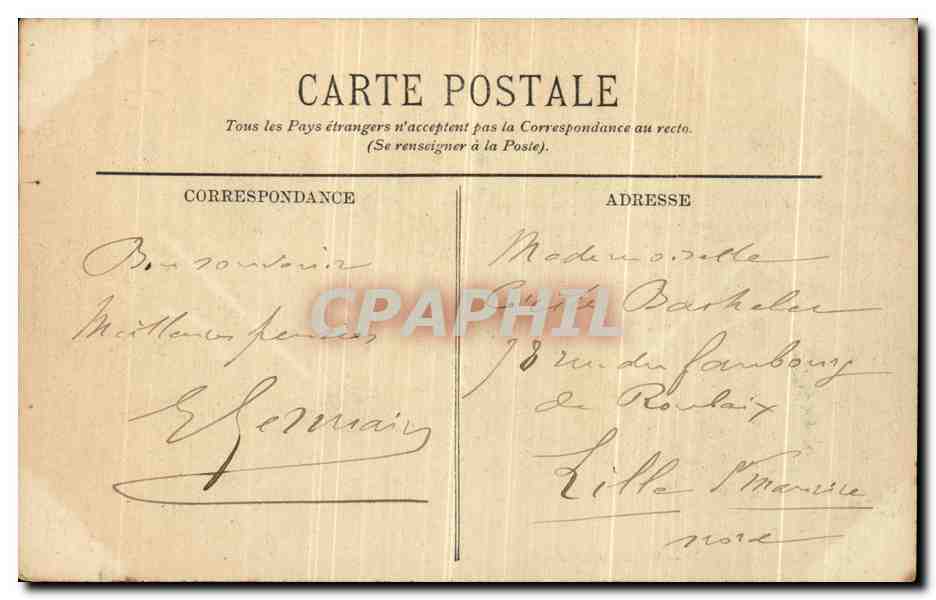 CARTE POSTALE
Tous les Pays étrangers n'acceptent pas la Correspondance au recto.
(Se renseigner à la Poste).
CORRESPONDANCE
Bon souvenir
Meilleures pensées
E Germain
ADRESSE
Mademoiselle
78 rue du faubourg
de Roubaix
Lille St Maurice
nord
CPAPHIL